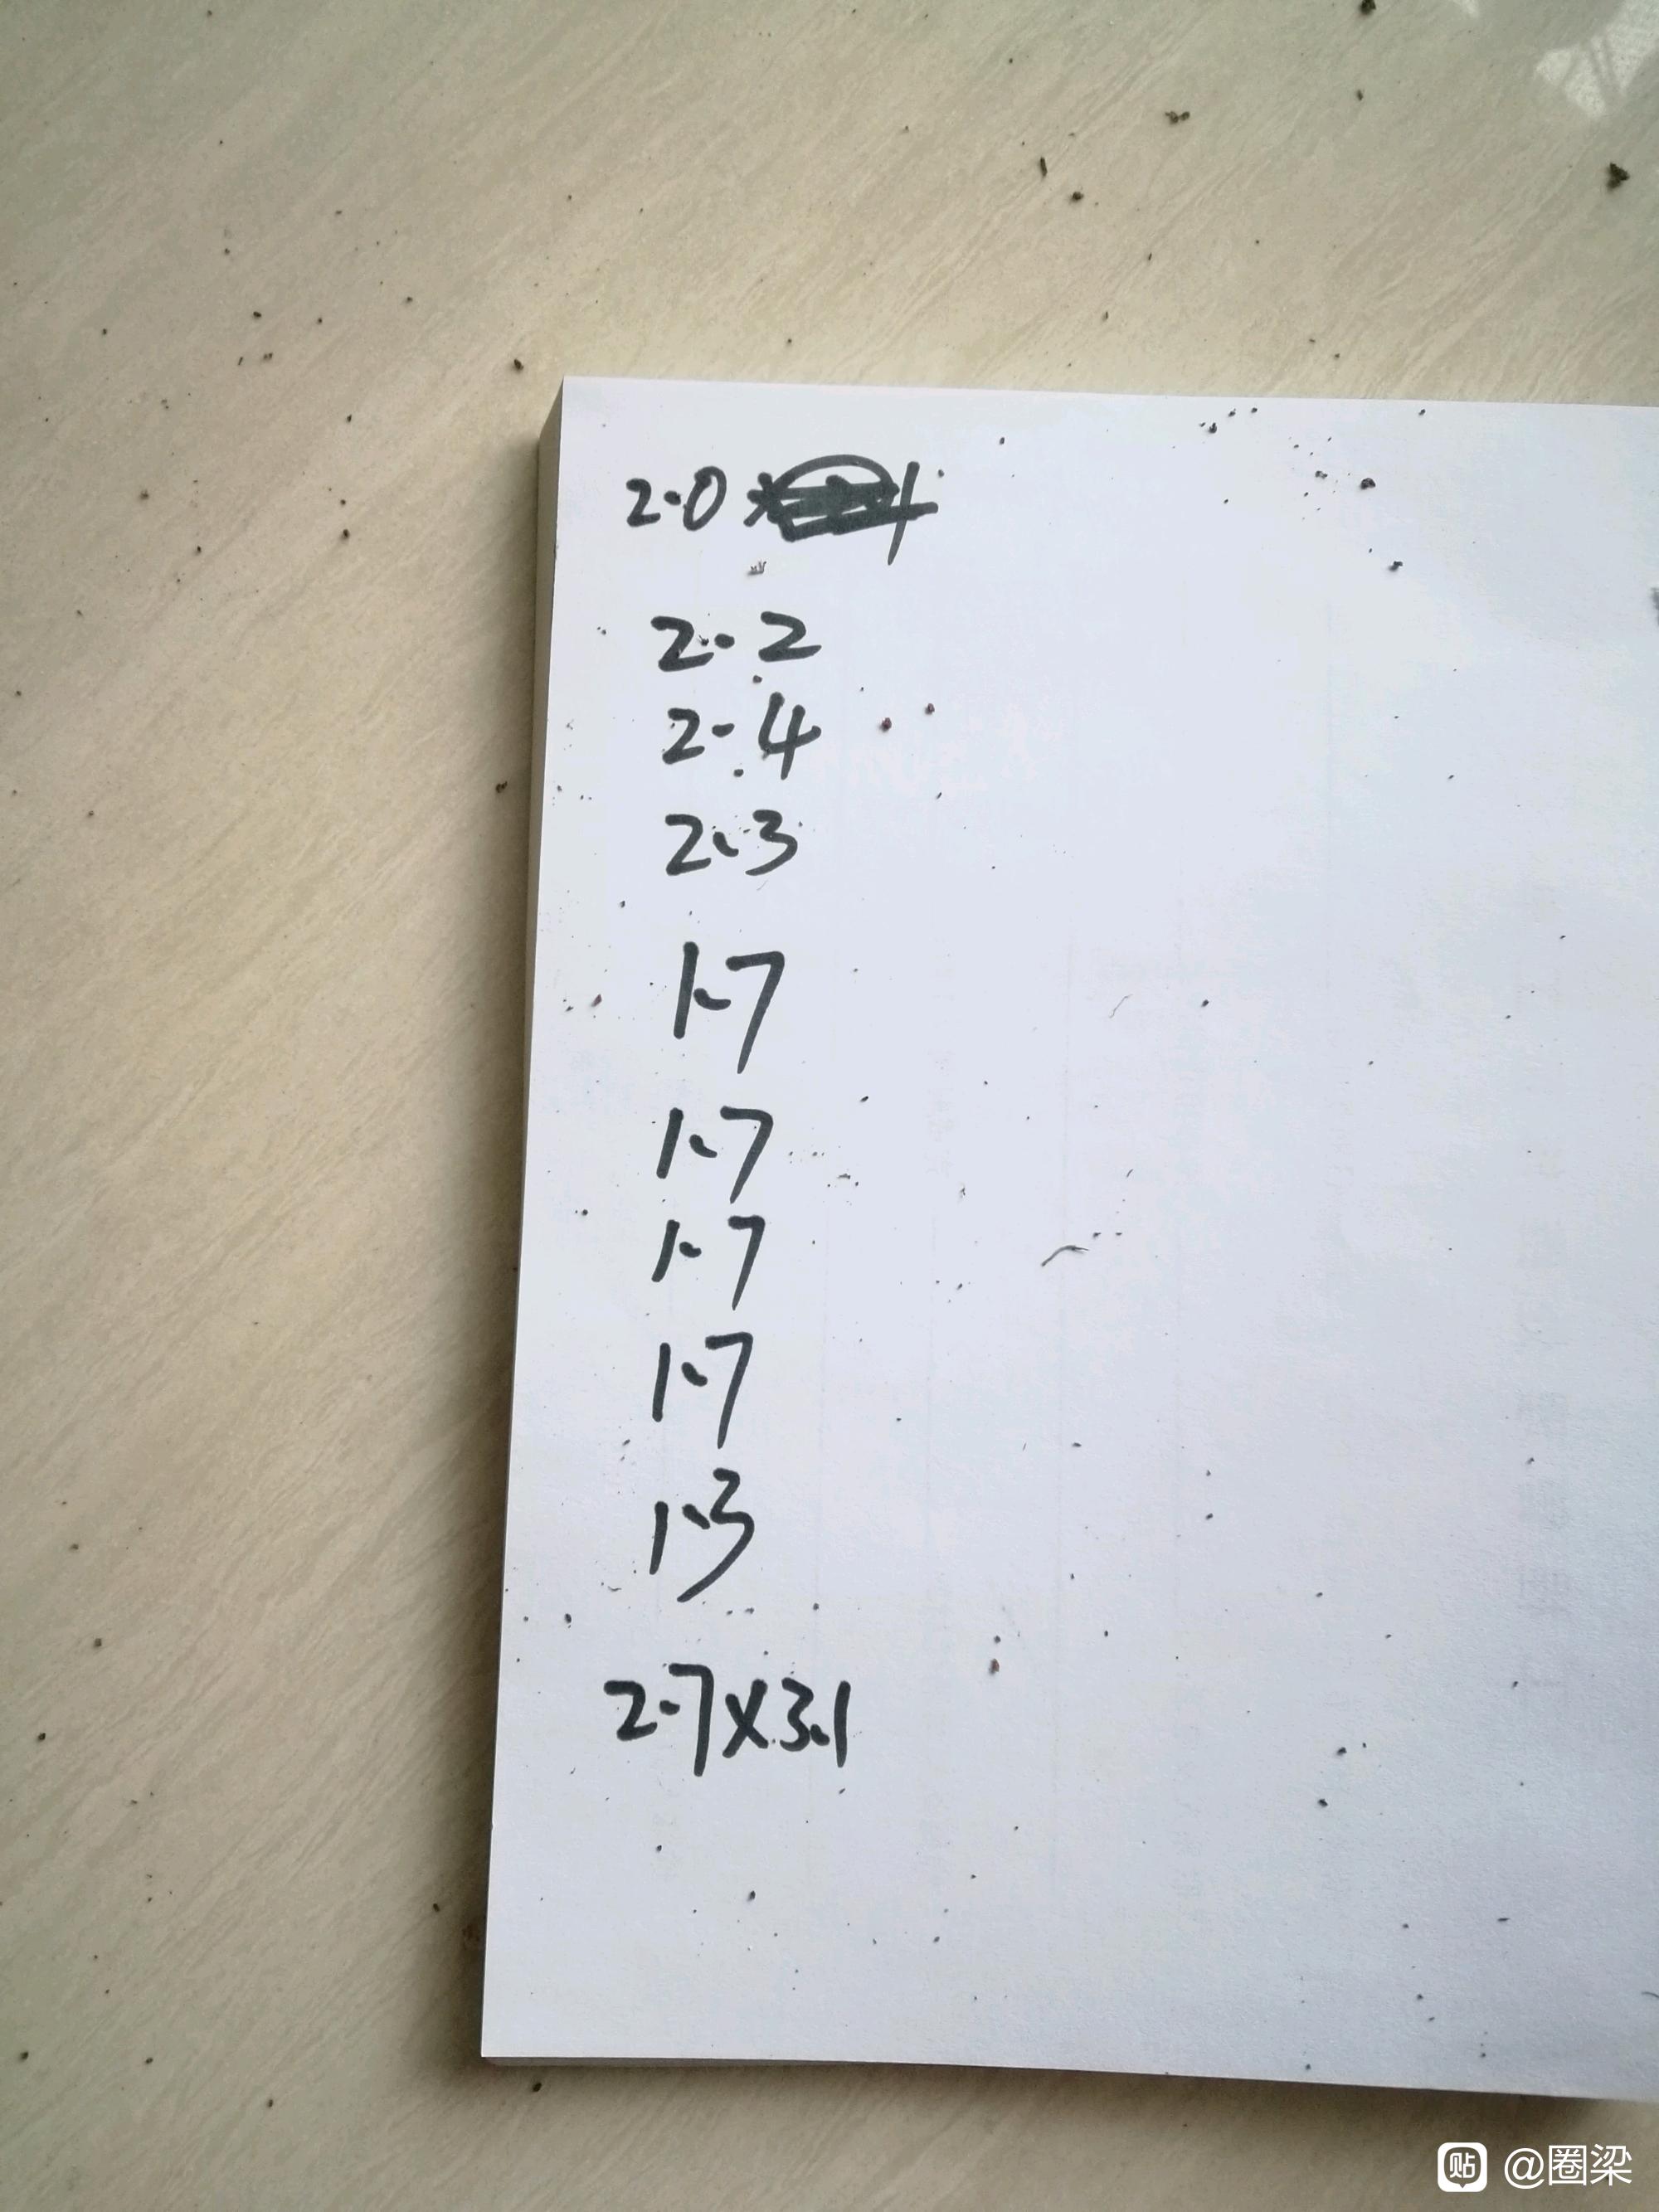 2.0
2.2
2.4
2.3
1.7
1.7
1.7
1.7
1.3
2.7×3.1
贴 @圈梁